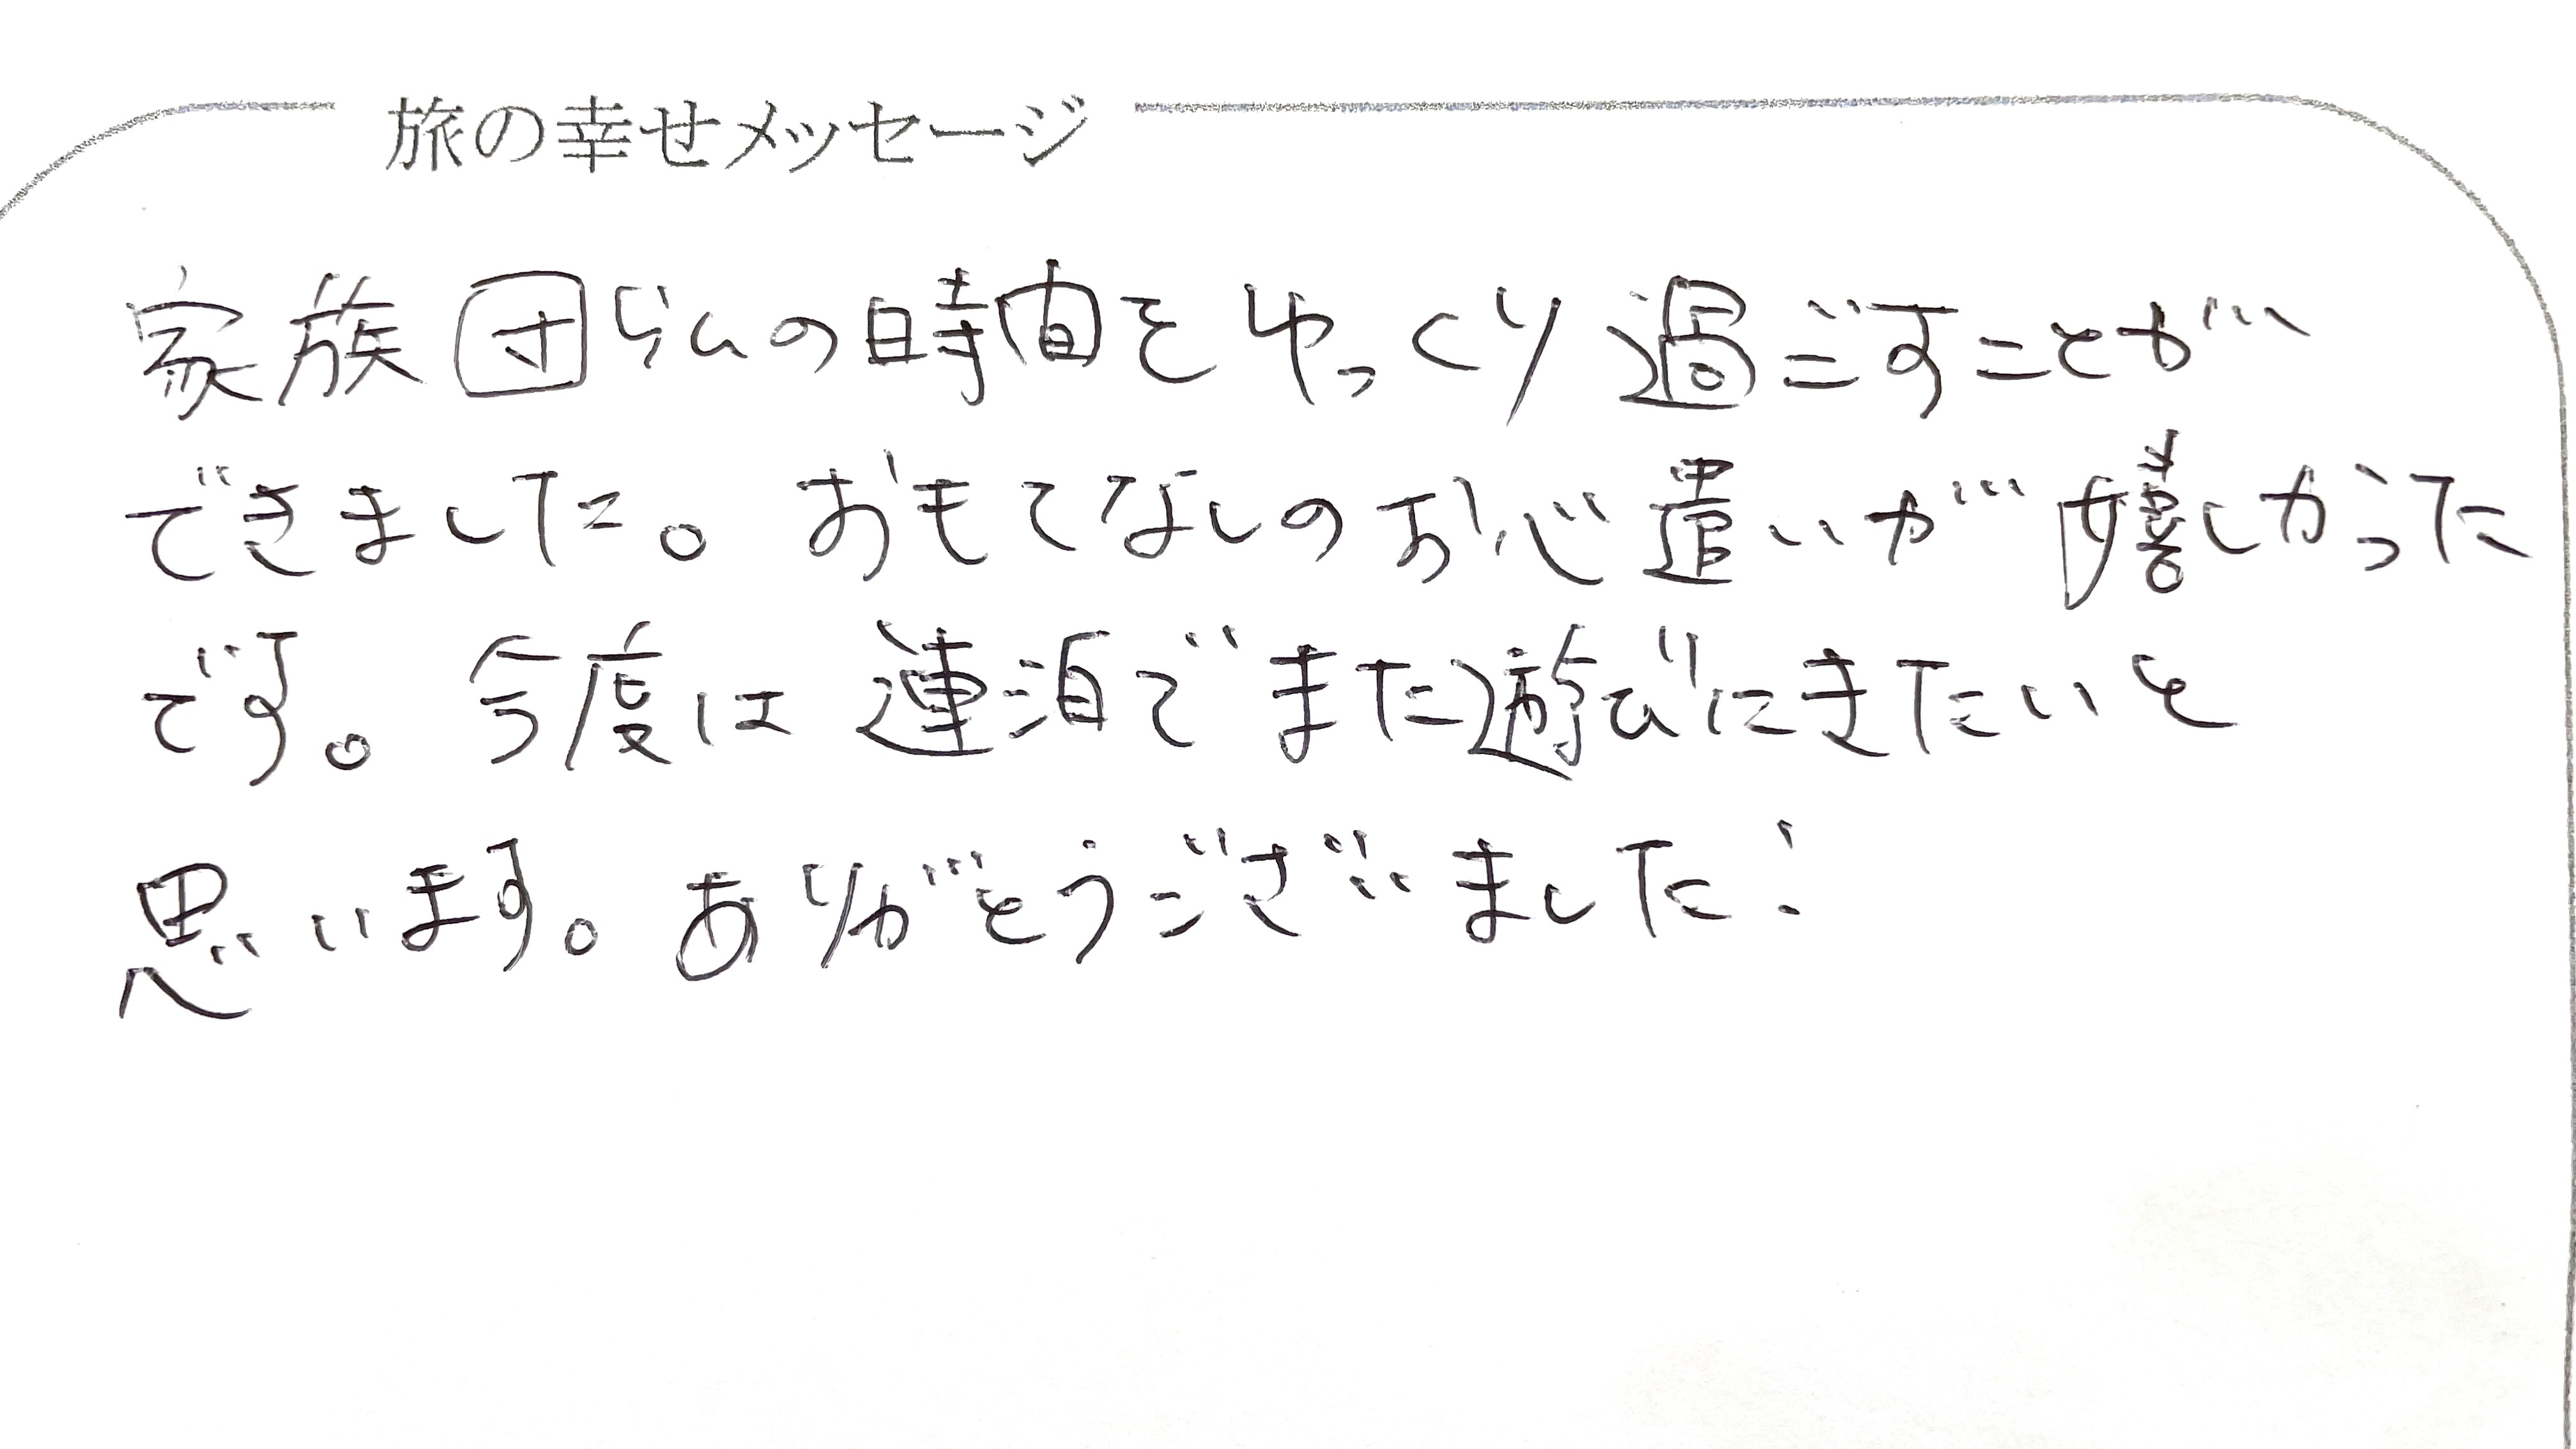 旅の幸せメッセージ
家族団らんの時間をゆっくり過ごすことが
できました。おもてなしのお心遣いが嬉しかった
です。今度は連泊でまた遊びにきたいと
思います。ありがとうございました!